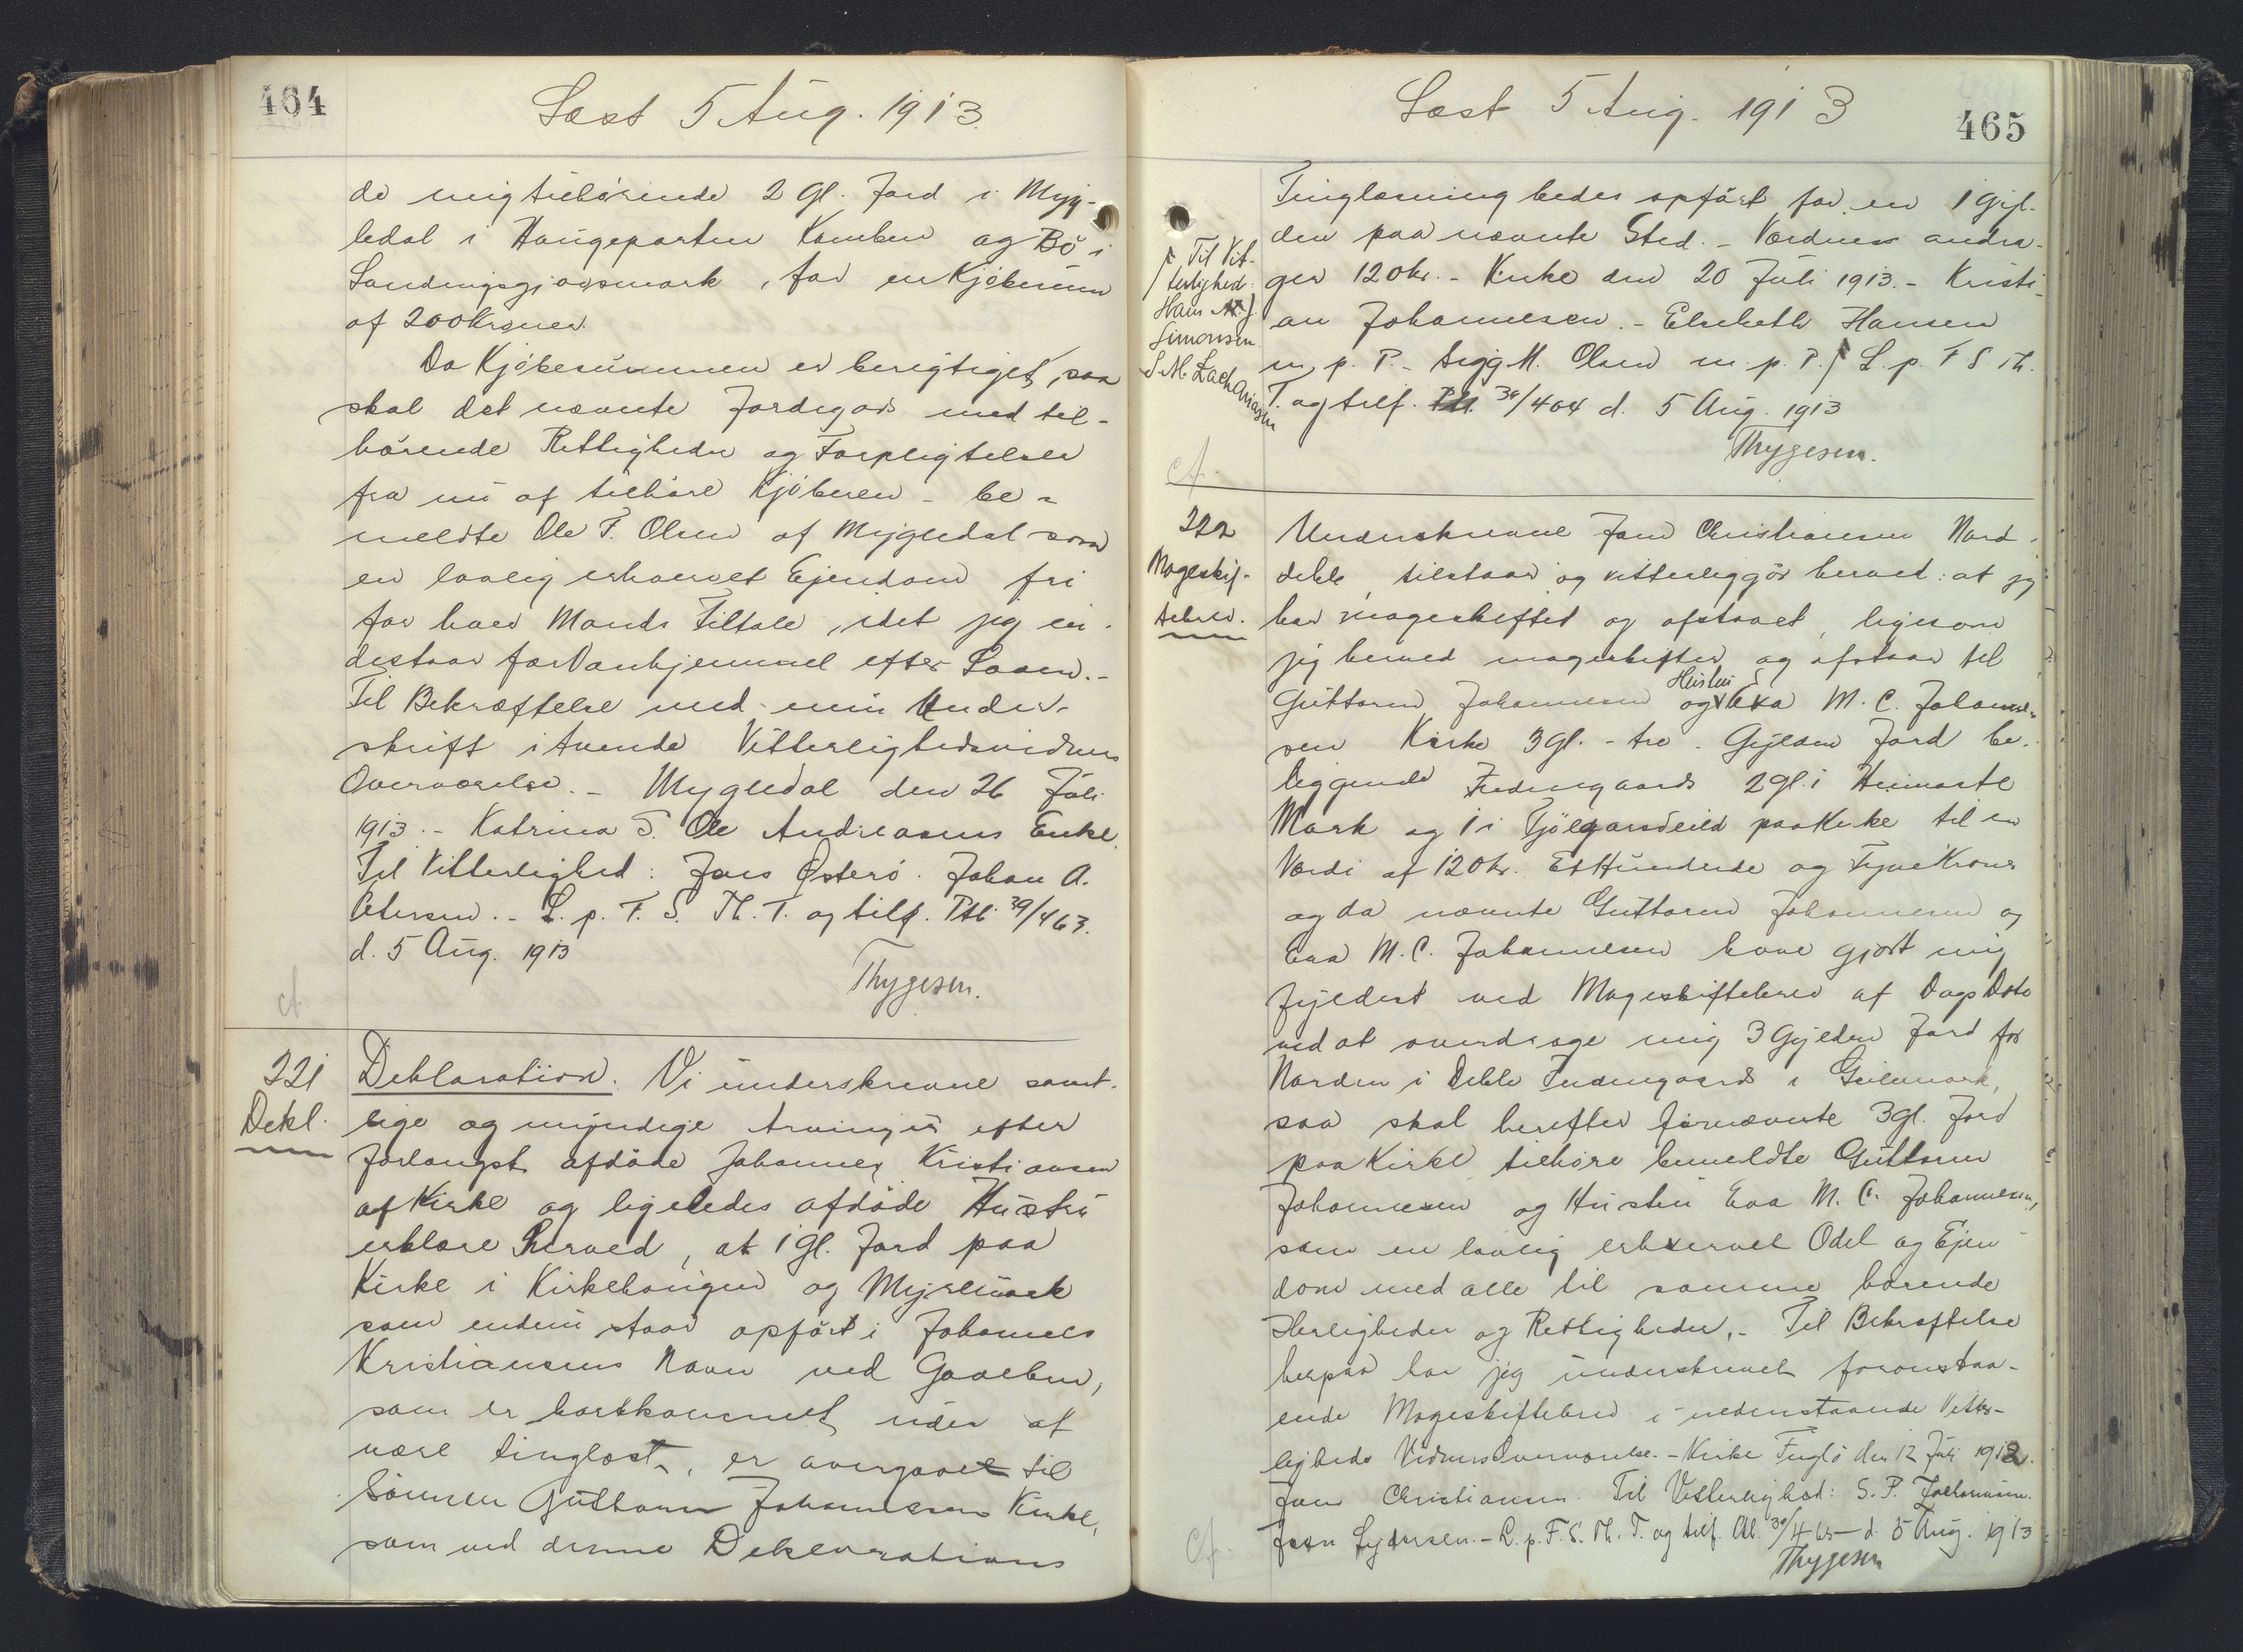 464
Læst 5 Aug. 1913.
de mig tilhørende 2 gl. Jord i Myg-
ledal i Haugeparten Kamben og Bø i
Sandingsgjaosmark, for en Kjøbesum
af 200 Kroner.
Da Kjøbesummen er berigtiget, saa
skal det nævnte Jordegods med til-
hørende Rettigheder og Forpligtelser
fra nu af tilhøre Kjøberen - be-
meldte Ole F. Olsen af Mygledal som
en lovlig erhvervet Ejendom fri
for hver Mands Tiltale, idet jeg in-
destaar for Vanhjemmel efter Loven.-
Til Bekræftelse med min Under-
skrift i tvende Vitterlighedsvidners
Overværelse. - Mygledal den 26 Juli
1913. - Katrina S. Ole Andreasens Enke.
Til Vitterlighed: Joen Østerø. Johan A.
Petersen. - L. p. F. S. Th. T. og tilf. Ptb. 39/463.
d. 5 Aug. 1913
Thygesen.
cf.
221 Deklaration. Vi underskrevne samt-
Dekl. lige og myndige Arvinger efter
forlængst afdøde Johannes Kristiansen
af Kirke og ligeledes afdøde Hustru
erklære herved, at 1 gl. Jord paa
Kirke i Kirkehaugen og Myremark
som endnu staar opført i Johannes
Kristiansens Navn ved Gavebrev,
som er bortkommet uden at
være tinglæst, er overgaaet til
Sønnen Guttorm Johannesen Kirke,
som ved denne Deklarations
465
Læst 5 Aug. 1913
Tinglæsning bedes opført for en 1 Gyl-
den paa nævnte Sted. - Værdien andra-
ger 120 kr. - Kirke den 20 Juli 1913. - Kristi-
an Johannesen. - Elsebeth Hansen
m. p. P. - Sigg M. Olsen m. p. P. L. p. F S Th.
T. og tilf. 39/464 d. 5 Aug. 1913
Thygesen.
Til Vit-
terlighed:
Hans J.
Simonsen
S M. Zachariasen
cf.
222 Underskrevne Joen Christiansen Nord-
Mageskif- debble, tilstaar og vitterliggør herved: at jeg
tebrev. har mageskiftet og afstaaet, ligesom
jeg herved mageskifter og afstaar til
Guttorm Johannesen og Hustru Eva M. C. Johanne-
sen Kirke 3 gl. - tre - Gylden Jord be-
liggende Indengaards 2 gl. i Heimaste
Mark og 1 i Tjölgarsdeild paa Kirke til en
Værdi af 120 kr. Et Hundrede og Tyve Kroner
og da nævnte Guttorm Johannesen og
Eva M. C. Johannesen have gjort mig
fyldest ved Mageskiftebrev af Dags Dato
ved at overdrage mig 3 Gylden Jord for
Norden i Debble Indengaards i Geilemark,
saa skal herefter førnævnte 3 gl. Jord
paa Kirke tilhøre bemeldte Guttorm
Johannesen og Hustru Eva M. C. Johannesen,
som en lovlig erhvervet Odel og Ejen-
dom med alle til samme hørende
Herligheder og Rettigheder. - Til Bekræftelse
herpaa har jeg underskrevet foranstaa-
ende Mageskiftebrev i nedenstaaende Vitter-
ligheds Vidners Overværelse. - Kirke Fuglø den 12 Juli 1912.
Joen Christiansen. Til Vitterlighed: S. P. Zachariasen.
Joen Lydersen. - L. p. F. S. Th. T. og tilf. 39/465 d. 5 Aug. 1913
Thygesen
cf.